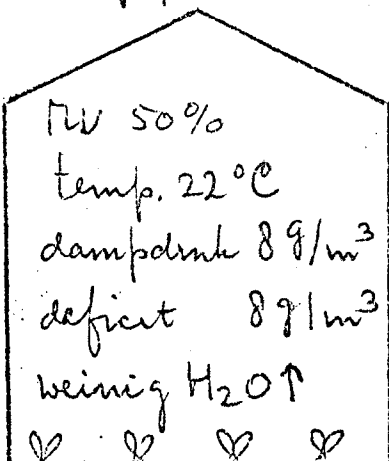 RV 50%
temp. 22°C
dampdruk 8 g/m³
deficit 8 g/m³
weinig H₂O↑